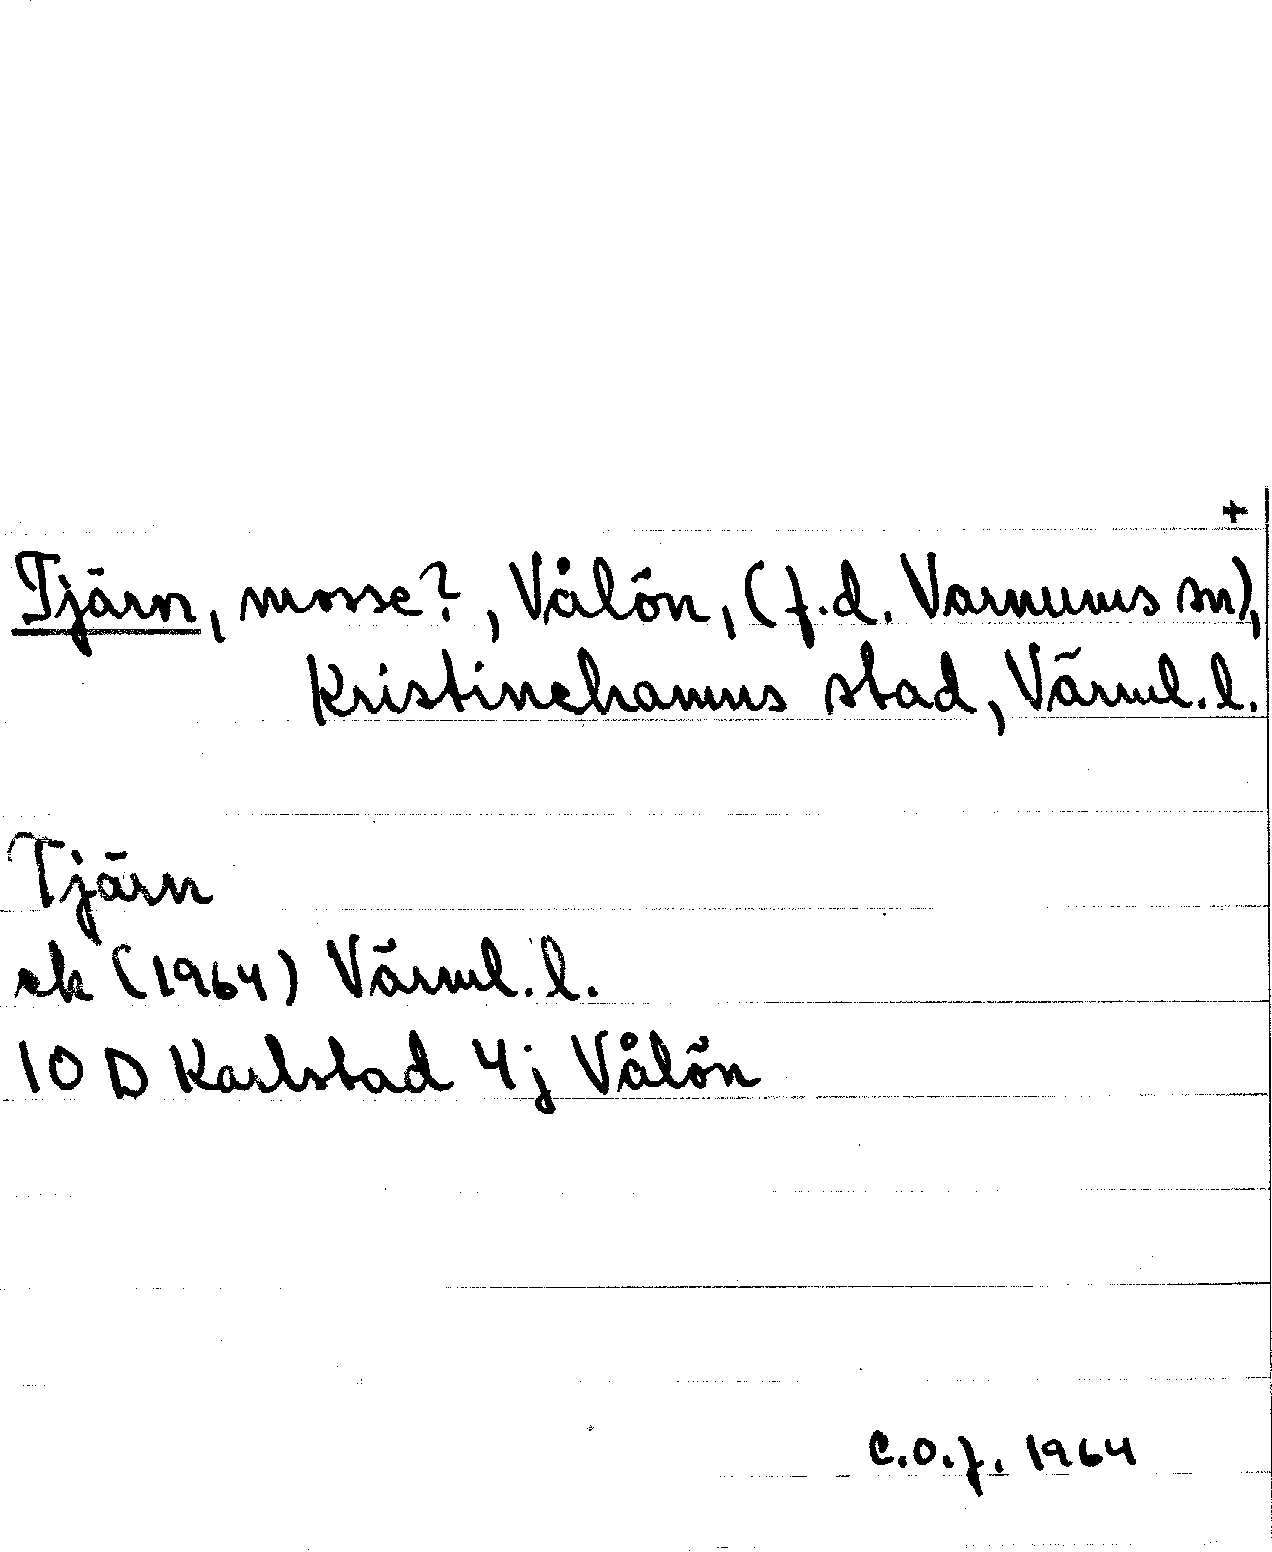 +
Tjärn, mosse?, Vålön, (f.d. Varnums sn),
Kristinehamns stad, Värml.l.
Tjärn
ek (1964) Värml.l.
10 D Karlstad 4j Vålön
C.O.f. 1964